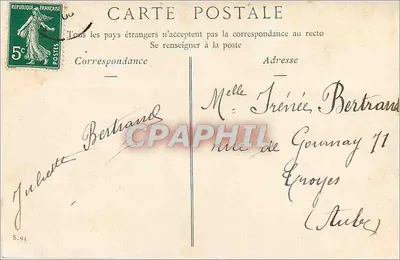 CARTE POSTALE
Tous les pays étrangers n'acceptent pas la correspondance au recto
Se renseigner à la poste
REPUBLIQUE FRANÇAISE
5c
POSTES
Correspondance
Adresse
Juliette Bertrand
Melle Irénée Bertrand
rue de Gournay 71
Troyes
(Aube)
CPAPHIL
S. 91